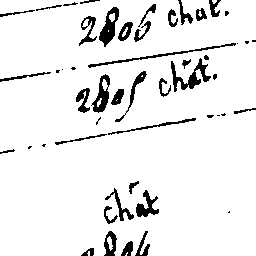 2806 chat.
2805 chãt.
chãt
2804